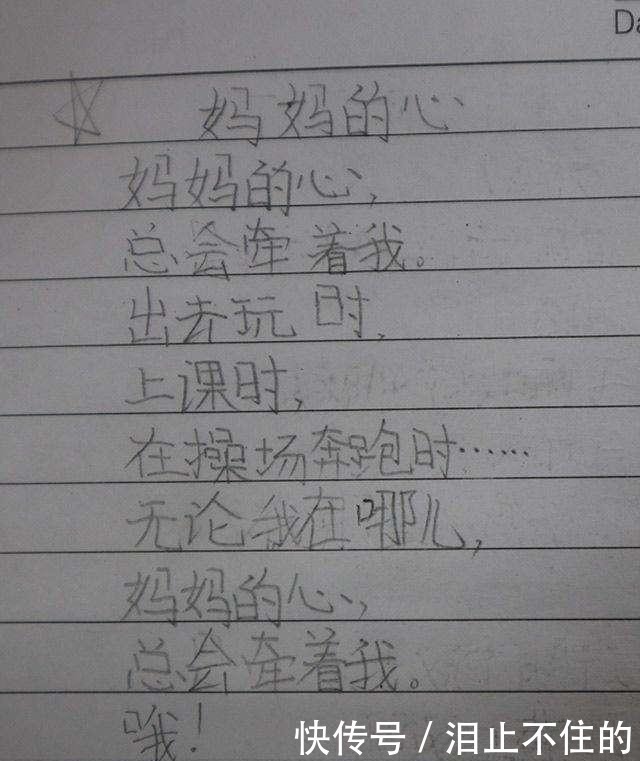 Da
妈妈的心
妈妈的心,
总会牵着我。
出去玩时,
上课时,
在操场奔跑时……
无论我在哪儿,
妈妈的心,
总会牵着我。
哦!
快传号／泪止不住的